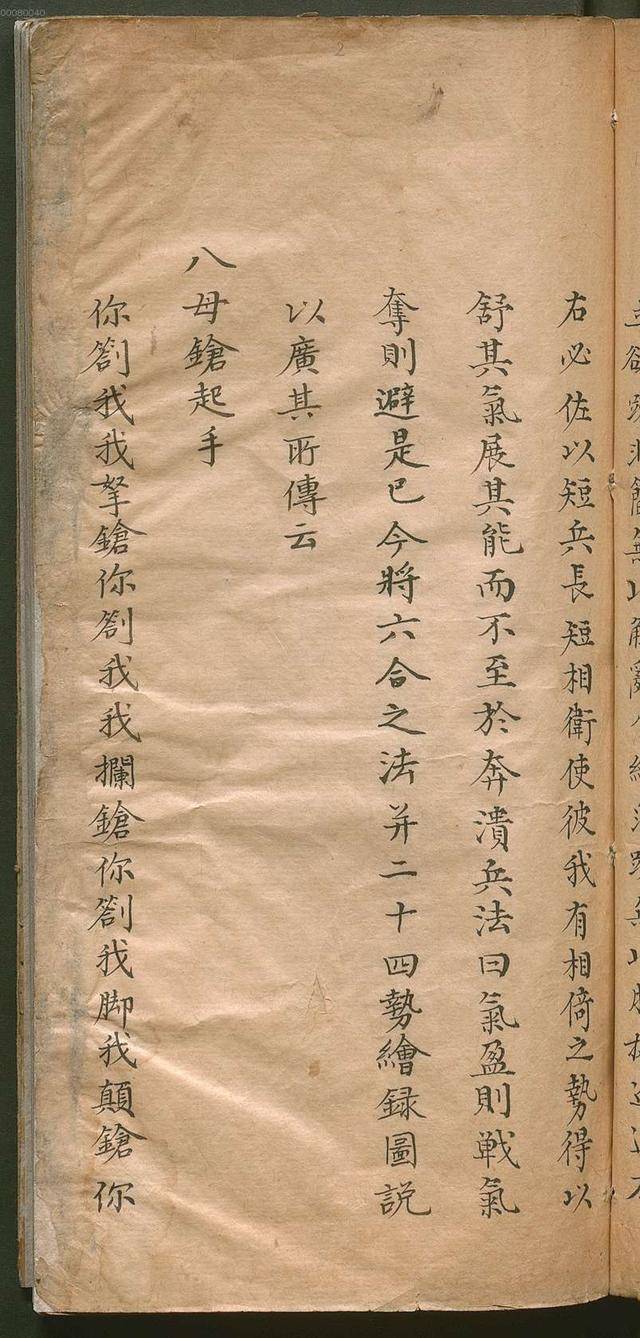 右必佐以短兵長短相衛使彼我有相倚之勢得以
舒其氣展其能而不至於奔潰兵法曰氣盈則戦氣
奪則避是巳今將六合之法并二十四勢繪録圖説
以廣其所傳云
八母鎗起手
你劄我我拏鎗你劄我我攔鎗你劄我脚我顛鎗你
00080040
2